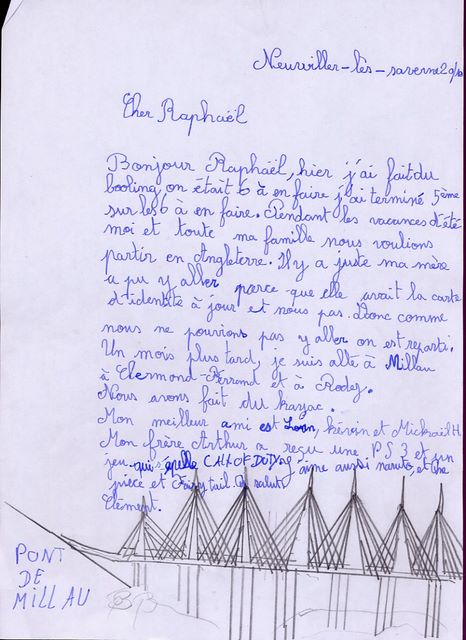 Neuwiller-lès-saverne 29/
Cher Raphaël
Bonjour Raphaël, hier j'ai fait du
booling, on était 6 à en faire j'ai terminé 5ème
sur les 6 à en faire. Pendant les vacances d'été
moi et toute ma famille nous voulions
partir en Angleterre. Il y a juste ma mère
a pu y aller parce que elle avait la carte
d'identité à jour et nous pas. Donc comme
nous ne pouvions pas y aller on est reparti.
Un mois plus tard, je suis allé à Millau
à Clermond-Ferrand et à Rodez.
Nous avons fait du kayac.
Mon meilleur ami est kévin et Mickaïl H
Mon frère Arthur a reçu une PS3 et un
jeu qui s'apelle CALL OF DUTY j'aime aussi naruto, et One
piece et Fairy tail. salut
Clément.
PONT
DE
MILLAU